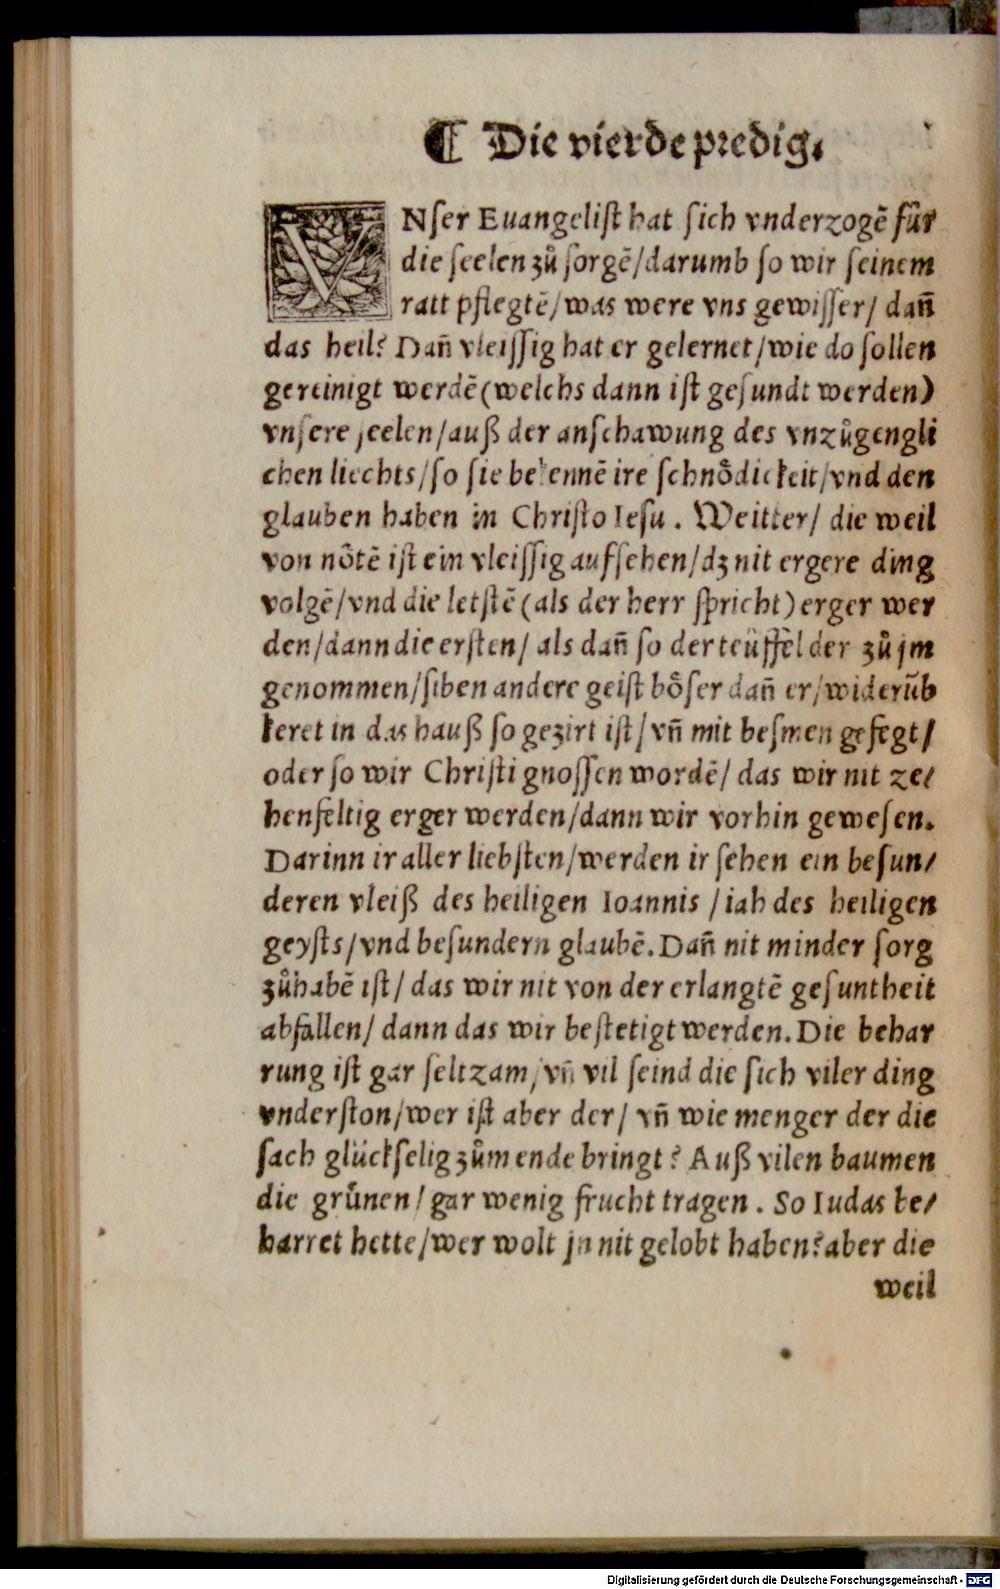 ¶ Die vierde predig.
VNſer Euangeliſt hat ſich vnderzogē für
die ſeelen zů ſorgē/darumb ſo wir ſeinem
ratt pflegtē/was were vns gewiſſer/ dañ
das heil? Dañ vleiſſig hat er gelernet/wie do ſollen
gereinigt werdē(welchs dann iſt geſundt werden)
vnſere ſeelen/auß der anſchawung des vnzůgengli
chen liechts/ſo ſie bekennē ire ſchnödickeit/vnd den
glauben haben in Chriſto Ieſu . Weitter/ die weil
von nötē iſt ein vleiſſig aufſehen/dz nit ergere ding
volgē/vnd die letſtē (als der herr ſpricht) erger wer
den/dann die erſten/ als dañ ſo der teüffel der zů jm
genommen/ſiben andere geiſt böſer dañ er/widerūb
keret in das hauß ſo gezirt iſt/ vñ mit beſmen gefegt/
oder ſo wir Chriſti gnoſſen wordē/ das wir nit ze/
henfeltig erger werden/dann wir vorhin geweſen.
Darinn ir aller liebſten/werden ir ſehen ein beſun/
deren vleiß des heiligen Ioannis /iah des heiligen
geyſts/vnd beſundern glaubē. Dañ nit minder ſorg
zůhabē iſt/ das wir nit von der erlangtē geſuntheit
abfallen/ dann das wir beſtetigt werden. Die behar
rung iſt gar ſeltzam/vñ vil ſeind die ſich viler ding
vnderſton/wer iſt aber der/ vñ wie menger der die
ſach glückſelig zům ende bringt? Auß vilen baumen
die grünen/ gar wenig frucht tragen . So Iudas be/
harret hette/wer wolt jn nit gelobt haben? aber die
weil
Digitalisierung gefördert durch die Deutsche Forschungsgemeinschaft - DFG